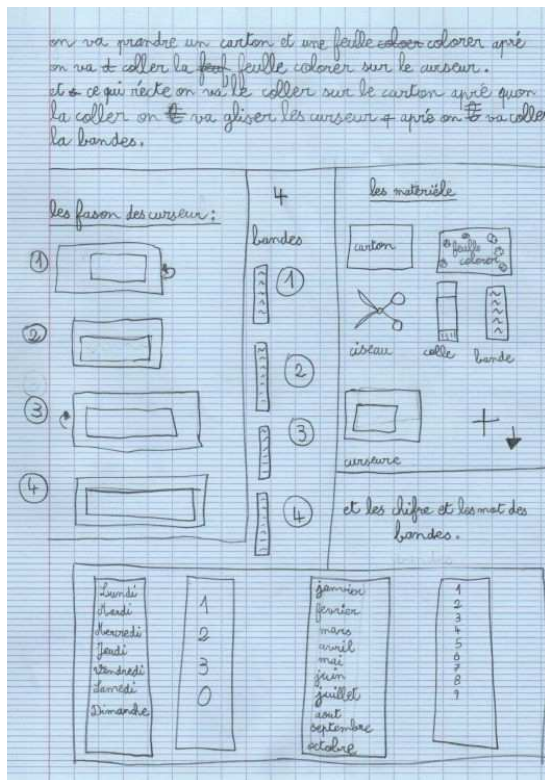 on va prandre un carton et une feulle colorer apré
on va coller la feulle colorer sur le curseur.
et ce qui recte on va le coller sur le carton apré quon
la coller on va gliser les curseur apré on va coller
la bandes.
les fason des curseur :
1
2
3
4
4
bandes
1
2
3
4
les materiéle
carton
feulle
coloror
ciseau
colle
bande
curseure
+
et les chifre et les mot des
bandes.
Lundi
Mardi
Mercredi
Jeudi
Vendredi
Samedi
Dimanche
1
2
3
0
janvier
fevrier
mars
avril
mai
juin
juillet
aout
septembre
octobre
1
2
3
4
5
6
7
8
9